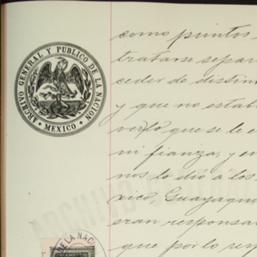 ARCHIVO GENERAL Y PUBLICO DE LA NACION
• MEXICO •
como puntos
tratarse separ
ceder de distin
y que no estab
verlo que se le e
mi fianza, y en
nos lo dió á los
xico, Guayaqui
eran responsa
que por lo resp
ARCHIVO
DE LA NA